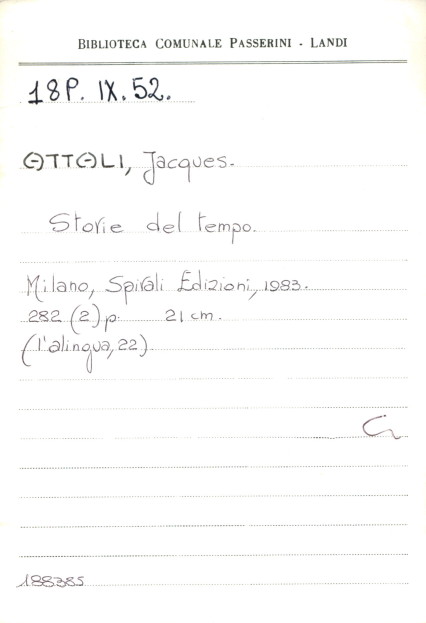 BIBLIOTECA COMUNALE PASSERINI - LANDI
18P. IX. 52.
ATTALI, Jacques.
Storie del tempo.
Milano, Spirali Edizioni, 1983.
282 (2) p. 21 cm.
(l'alingua, 22).
188385